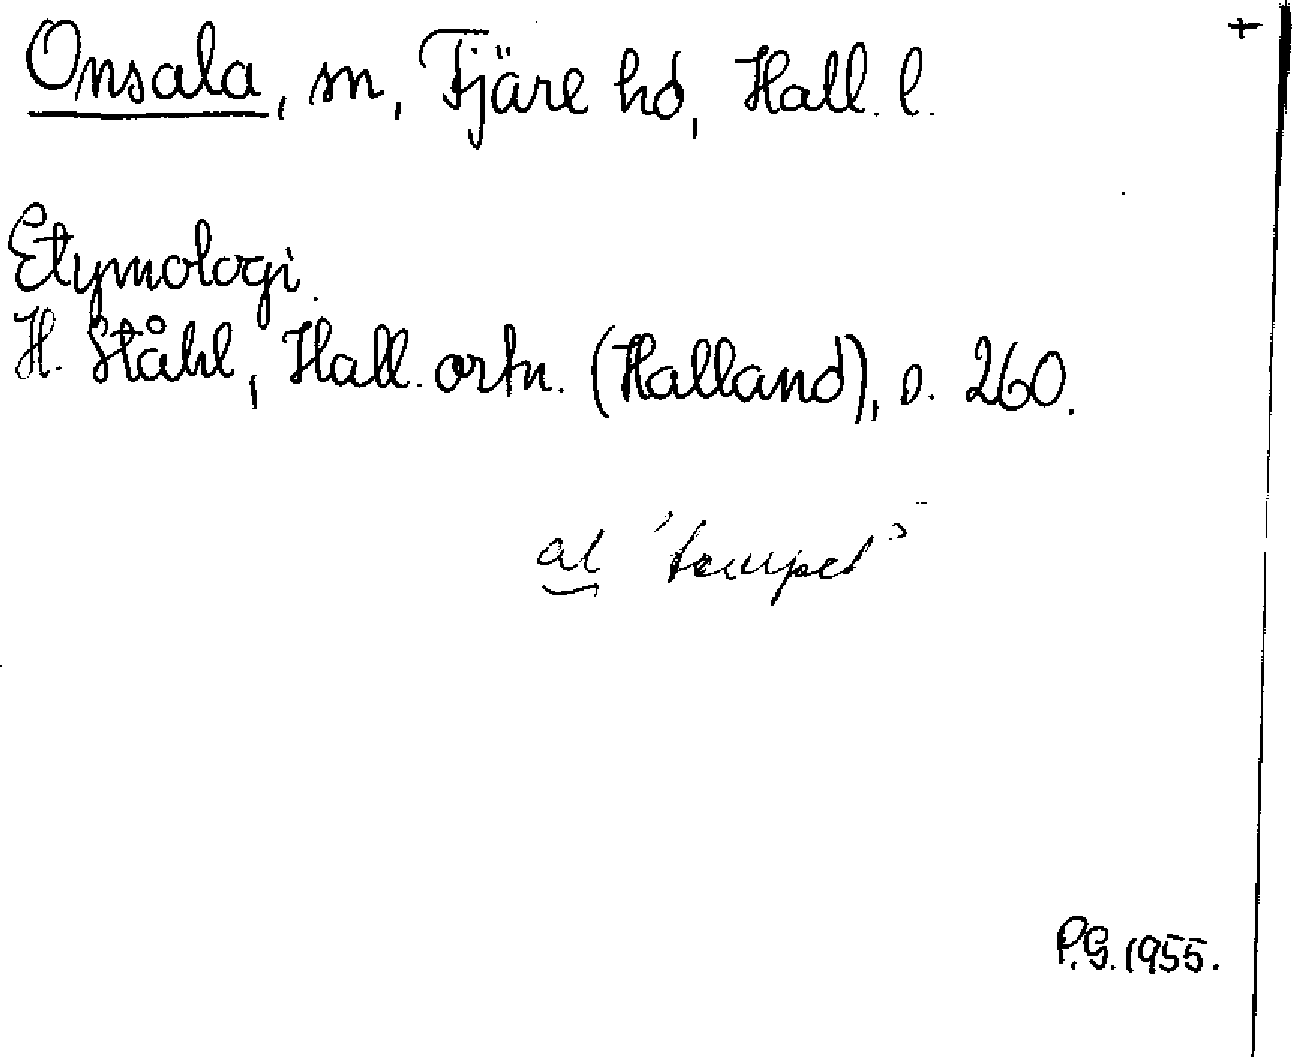 +
Onsala, sn, Fjäre hd, Hall. l.
Etymologi.
H. Ståhl, Hall. ortn. (Halland), s. 260.
al 'tempel'
P.G. 1955.